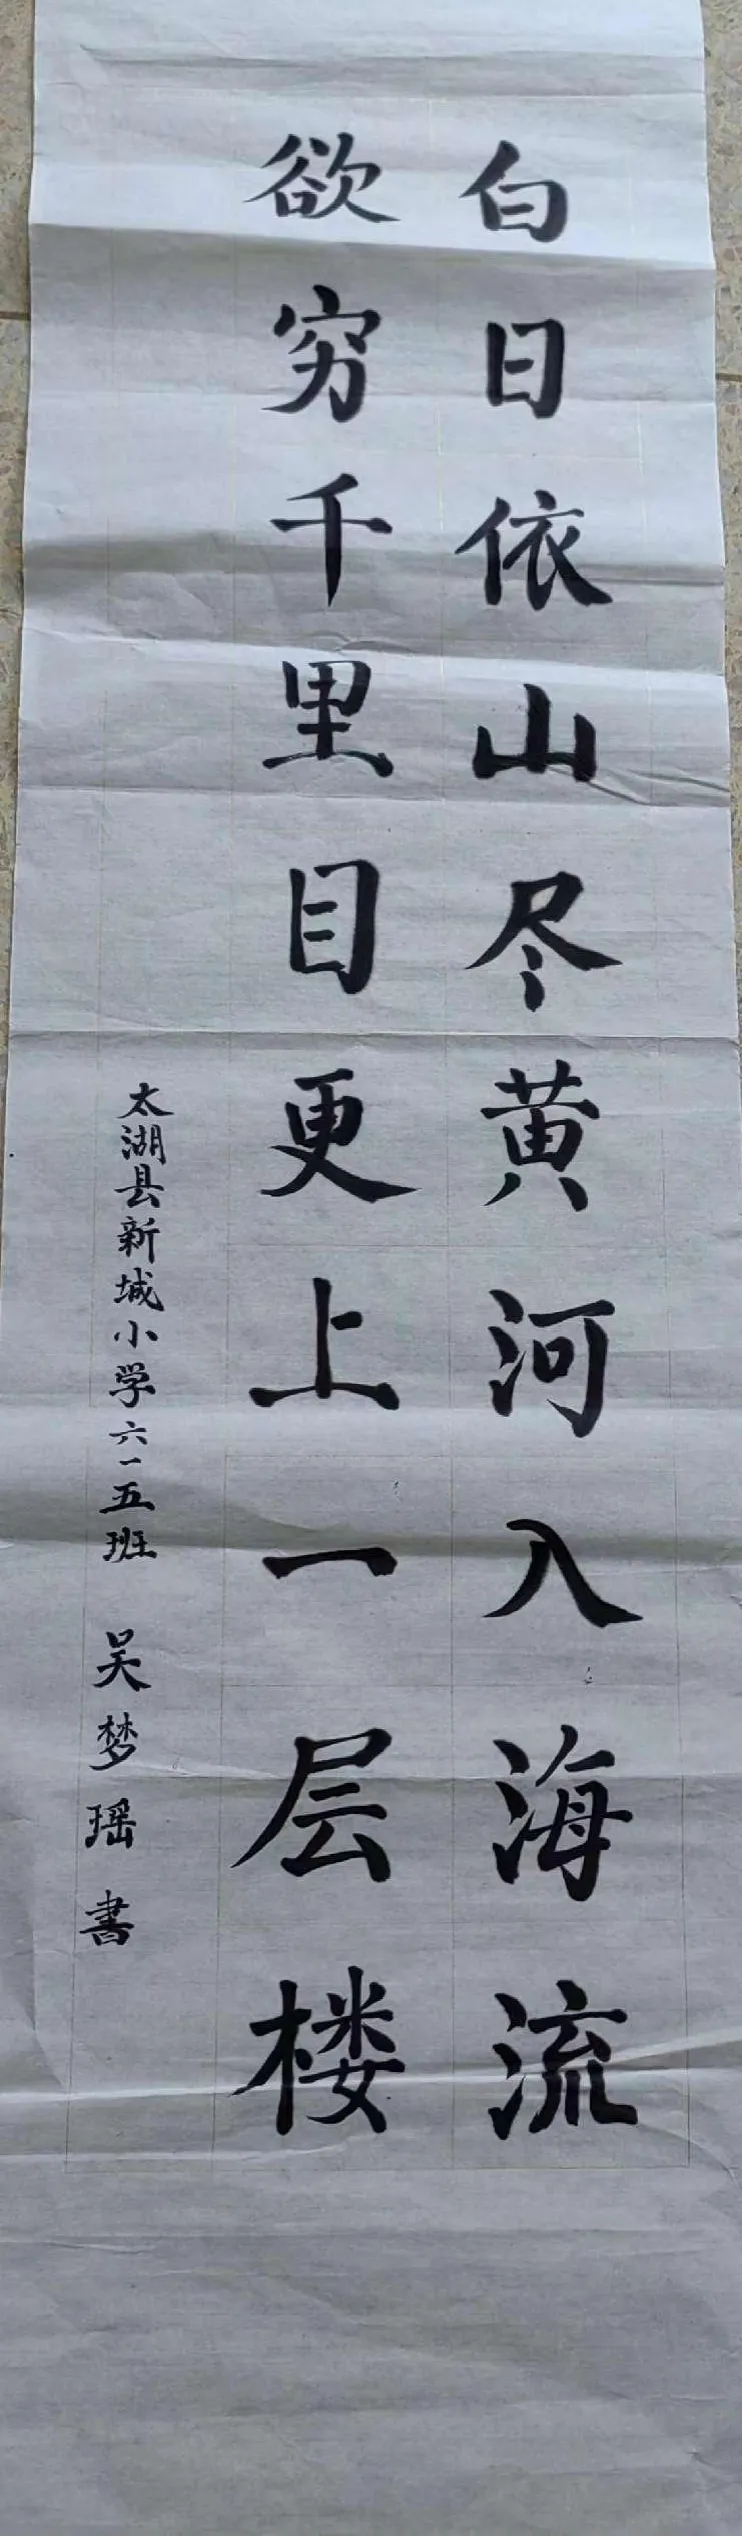 白日依山尽黄河入海流
欲穷千里目更上一层楼
太湖县新城小学六一五班 吴梦瑶書